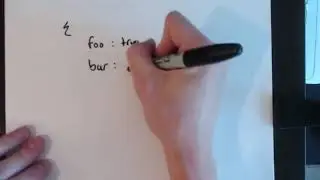 {
foo : true
bar :